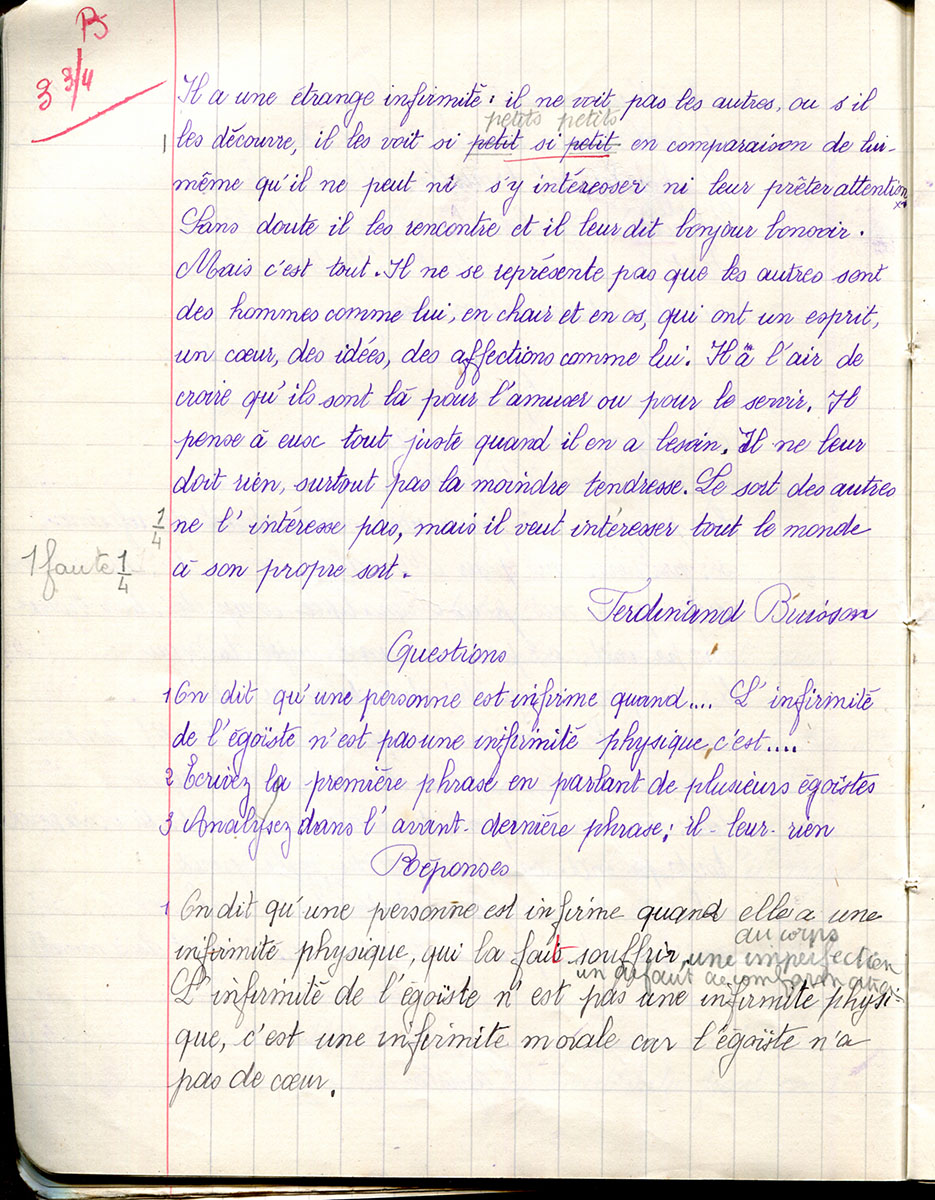 B
3 3/4
Il a une étrange infirmité : il ne voit pas les autres, ou s'il
petits petits
1 les découvre, il les voit si petit si petit en comparaison de lui-
même qu'il ne peut ni s'y intéresser ni leur prêter attention
Sans doute il les rencontre et il leur dit bonjour bonsoir.
Mais c'est tout. Il ne se représente pas que les autres sont
des hommes comme lui, en chair et en os, qui ont un esprit,
un cœur, des idées, des affections comme lui. Il a l'air de
croire qu'ils sont là pour l'amuser ou pour le servir. Il
pense à eux tout juste quand il en a besoin. Il ne leur
doit rien, surtout pas la moindre tendresse. Le sort des autres
1/4 ne l'intéresse pas, mais il veut intéresser tout le monde
1 faute 1/4 à son propre sort.
Ferdinand Buisson
Questions
1 On dit qu'une personne est infirme quand.... L'infirmité
de l'égoïste n'est pas une infirmité physique, c'est....
2 Ecrivez la première phrase en parlant de plusieurs égoïstes
3 Analysez dans l'avant-dernière phrase : il - leur - rien
Réponses
1 On dit qu'une personne est infirme quand elle a une
du corps
infirmité physique, qui la fait souffrir, une imperfection
un défaut de
L'infirmité de l'égoïste n'est pas une infirmité physi-
que, c'est une infirmité morale car l'égoïste n'a
pas de cœur.